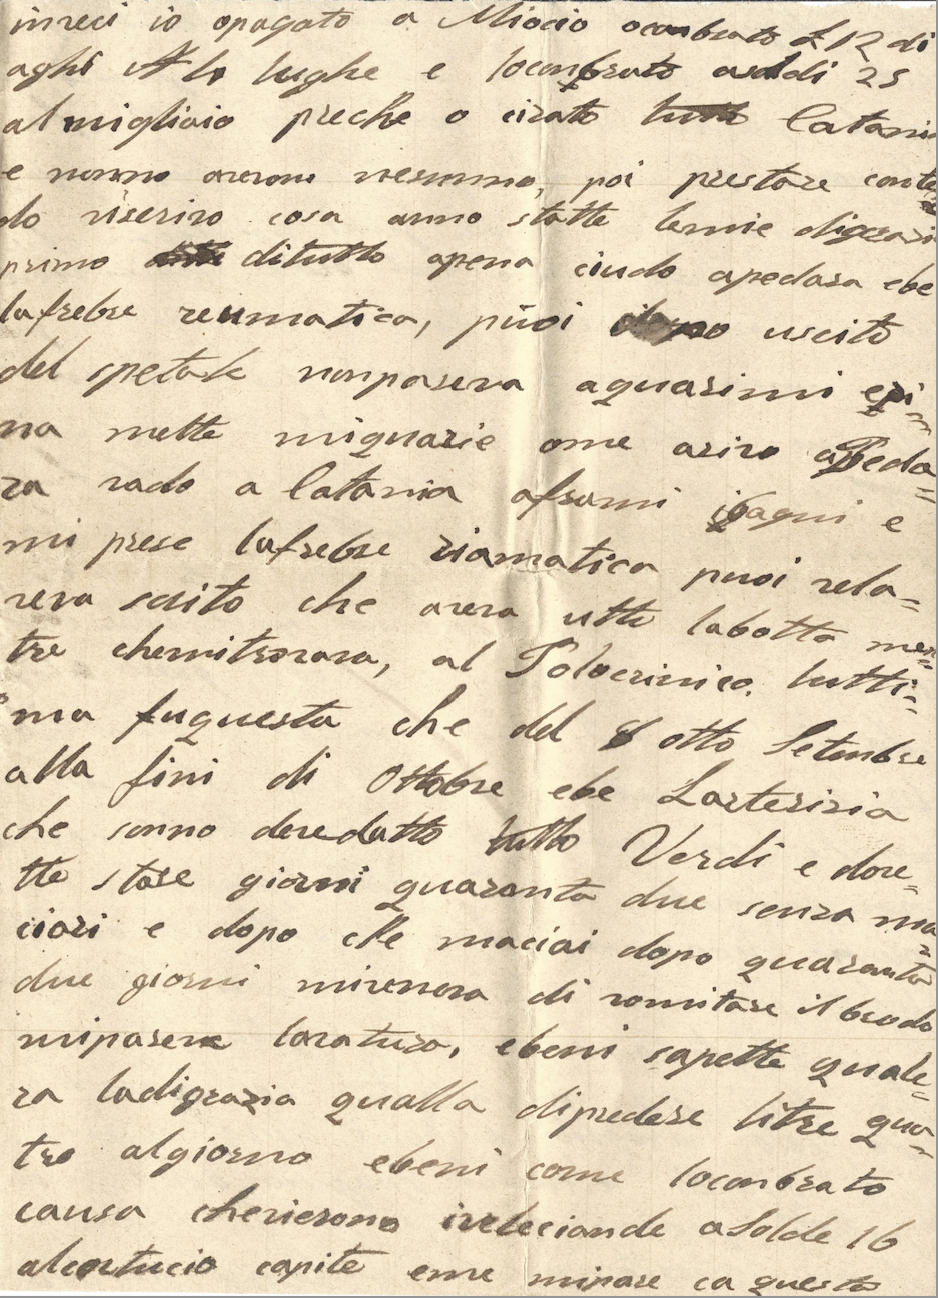 inveci io opagato a Miocio ocombrato £ 12 di
aghi A la lughe e locombrato asoldi 25
al migliaio preche o cirato tutto Catania
e nonno averono nesunno, poi prestare conte
do riseriro cosa anno statte lemie digrazi
primo ditutto apena ciudo apedara ebe
lafrebre reumatica, puoi dopo uscito
del spetale nonpaseva aquasimi epi=
na mette miquarie ome aviro aPeda=
ra vado a Catania afarmi ibagni e
mi prese lafrebre riamatica puoi vela=
reva scrito che avera utto labotta men=
tre chemitrovava, al Polocrinico. lutti=
ma fuquesta che del 8 otto Setenbre
alla fini di Ottobre ebe Larterizia
che sonno devedatto tutto Verdi e dove=
tte stare giorni quaranta due senza ma=
ciari e dopo che maciai dopo quaranta
due giorni mireneva di vomitare il brodo
mipareva lavatura, ebeni sapette quale=
ra ladigrazia qualla dipredere litre qua=
tro algiorno ebeni come locombrato
causa chevierono iveleciande a Solde 16
alcartucio capite eme mipare ca questo